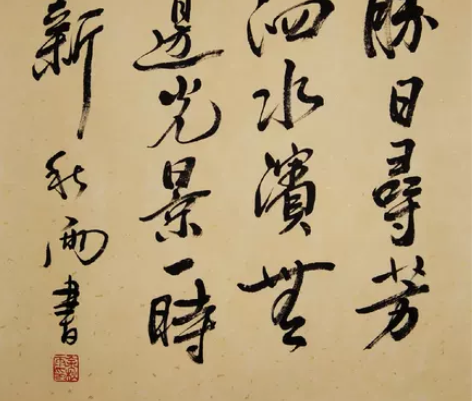 勝日尋芳
泗水濱無
邊光景一時
新 秋雨書